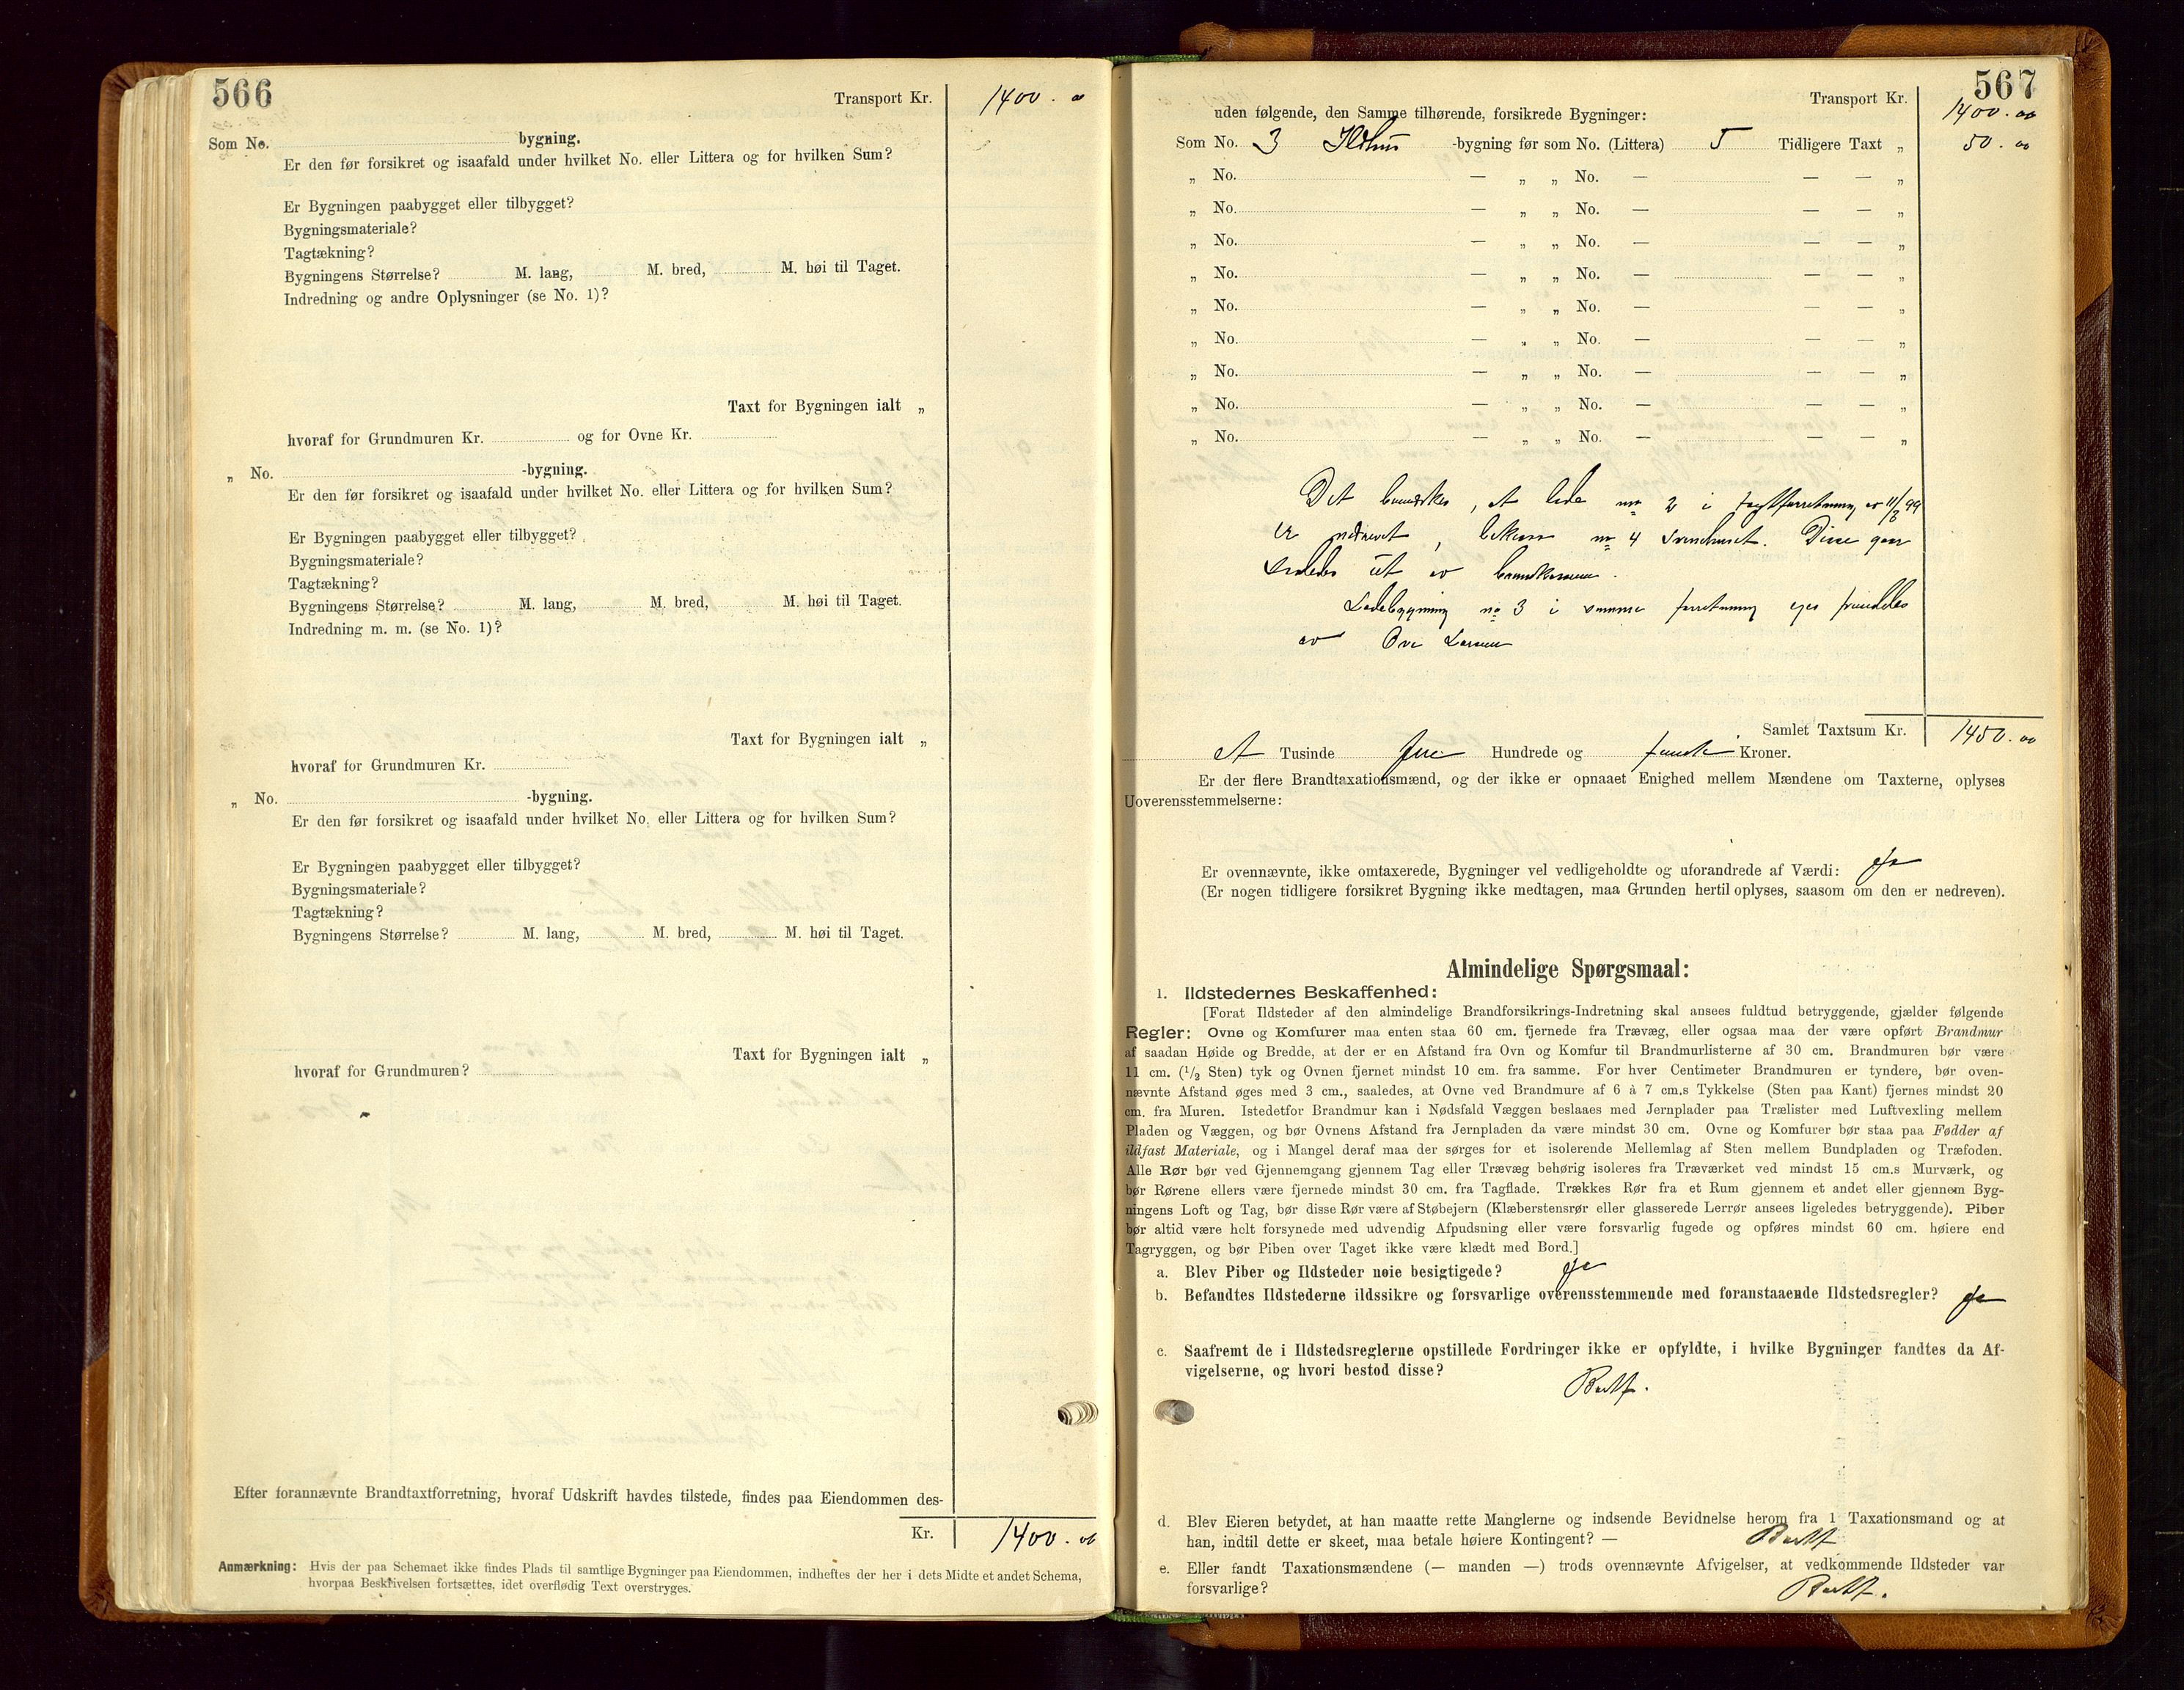 566
Transport Kr. 1400. 00
Som No. bygning.
Er den før forsikret og isaafald under hvilket No. eller Littera og for hvilken Sum?
Er Bygningen paabygget eller tilbygget?
Bygningsmateriale?
Tagtækning?
Bygningens Størrelse? M. lang, M. bred, M. høi til Taget.
Indredning og andre Oplysninger (se No. 1)?
Taxt for Bygningen ialt „
hvoraf for Grundmuren Kr. og for Ovne Kr.
„ No. -bygning.
Er den før forsikret og isaafald under hvilket No. eller Littera og for hvilken Sum?
Er Bygningen paabygget eller tilbygget?
Bygningsmateriale?
Tagtækning?
Bygningens Størrelse? M. lang, M. bred, M. høi til Taget.
Indredning m. m. (se No. 1)?
Taxt for Bygningen ialt „
hvoraf for Grundmuren Kr.
„ No. -bygning.
Er den før forsikret og isaafald under hvilket No. eller Littera og for hvilken Sum?
Er Bygningen paabygget eller tilbygget?
Bygningsmateriale?
Tagtækning?
Bygningens Størrelse? M. lang, M. bred, M. høi til Taget.
Taxt for Bygningen ialt „
hvoraf for Grundmuren?
Efter forannævnte Brandtaxtforretning, hvoraf Udskrift havdes tilstede, findes paa Eiendommen des-
Kr. 1400. 00
Anmærkning: Hvis der paa Schemaet ikke findes Plads til samtlige Bygninger paa Eiendommen, indheftes der her i dets Midte et andet Schema,
hvorpaa Beskrivelsen fortsættes, idet overflødig Text overstryges.
567
Transport Kr. 1400. 00
uden følgende, den Samme tilhørende, forsikrede Bygninger:
Som No. 3 Ildhus -bygning før som No. (Littera) 5 Tidligere Taxt „ 50. 00
„ No. — „ „ No. — — — „
„ No. — „ „ No. — — — „
„ No. — „ „ No. — — — „
„ No. — „ „ No. — — — „
„ No. — „ „ No. — — — „
„ No. — „ „ No. — — — „
„ No. — „ „ No. — — — „
„ No. — „ „ No. — — — „
„ No. — „ „ No. — — — „
Det bemerkes, at lade no 2 i taxtforretning av 11/8 99
er nedrevet, no 4 Svinehuset. Disse gaar
saaledes ut av brandkassen.
Ladebygning no 3 i samme forretning eies fremdeles
av Ove Larsen
Samlet Taxtsum Kr. 1450. 00
Et Tusinde fire Hundrede og femti Kroner.
Er der flere Brandtaxationsmænd, og der ikke er opnaaet Enighed mellem Mændene om Taxterne, oplyses
Uoverensstemmelserne:
Er ovennævnte, ikke omtaxerede, Bygninger vel vedligeholdte og uforandrede af Værdi: Ja
(Er nogen tidligere forsikret Bygning ikke medtagen, maa Grunden hertil oplyses, saasom om den er nedreven).
Almindelige Spørgsmaal:
1. Ildstedernes Beskaffenhed:
[Forat Ildsteder af den almindelige Brandforsikrings-Indretning skal ansees fuldtud betryggende, gjælder følgende
Regler: Ovne og Komfurer maa enten staa 60 cm. fjernede fra Trævæg, eller ogsaa maa der være opført Brandmur
af saadan Høide og Bredde, at der er en Afstand fra Ovn og Komfur til Brandmurlisterne af 30 cm. Brandmuren bør være
11 cm. (1/2 Sten) tyk og Ovnen fjernet mindst 10 cm. fra samme. For hver Centimeter Brandmuren er tyndere, bør oven-
nævnte Afstand øges med 3 cm., saaledes, at Ovne ved Brandmure af 6 à 7 cm.s Tykkelse (Sten paa Kant) fjernes mindst 20
cm. fra Muren. Istedetfor Brandmur kan i Nødsfald Væggen beslaaes med Jernplader paa Trælister med Luftvexling mellem
Pladen og Væggen, og bør Ovnens Afstand fra Jernpladen da være mindst 30 cm. Ovne og Komfurer bør staa paa Fødder af
ildfast Materiale, og i Mangel deraf maa der sørges for et isolerende Mellemlag af Sten mellem Bundpladen og Træfoden.
Alle Rør bør ved Gjennemgang gjennem Tag eller Trævæg behørig isoleres fra Træværket ved mindst 15 cm.s Murværk, og
bør Rørene ellers være fjernede mindst 30 cm. fra Tagflade. Trækkes Rør fra et Rum gjennem et andet eller gjennem Byg-
ningens Loft og Tag, bør disse Rør være af Støbejern (Klæberstensrør eller glasserede Lerrør ansees ligeledes betryggende). Piber
bør altid være helt forsynede med udvendig Afpudsning eller være forsvarlig fugede og opføres mindst 60 cm. høiere end
Tagryggen, og bør Piben over Taget ikke være klædt med Bord.]
a. Blev Piber og Ildsteder nøie besigtigede? Ja
b. Befandtes Ildstederne ildssikre og forsvarlige overensstemmende med foranstaaende Ildstedsregler? Ja
c. Saafremt de i Ildstedsreglerne opstillede Fordringer ikke er opfyldte, i hvilke Bygninger fandtes da Af-
vigelserne, og hvori bestod disse? Bortf.
d. Blev Eieren betydet, at han maatte rette Manglerne og indsende Bevidnelse herom fra 1 Taxationsmand og at
han, indtil dette er skeet, maa betale høiere Kontingent? — Bortf
e. Eller fandt Taxationsmændene (— manden —) trods ovennævnte Afvigelser, at vedkommende Ildsteder var
forsvarlige? Bortf.